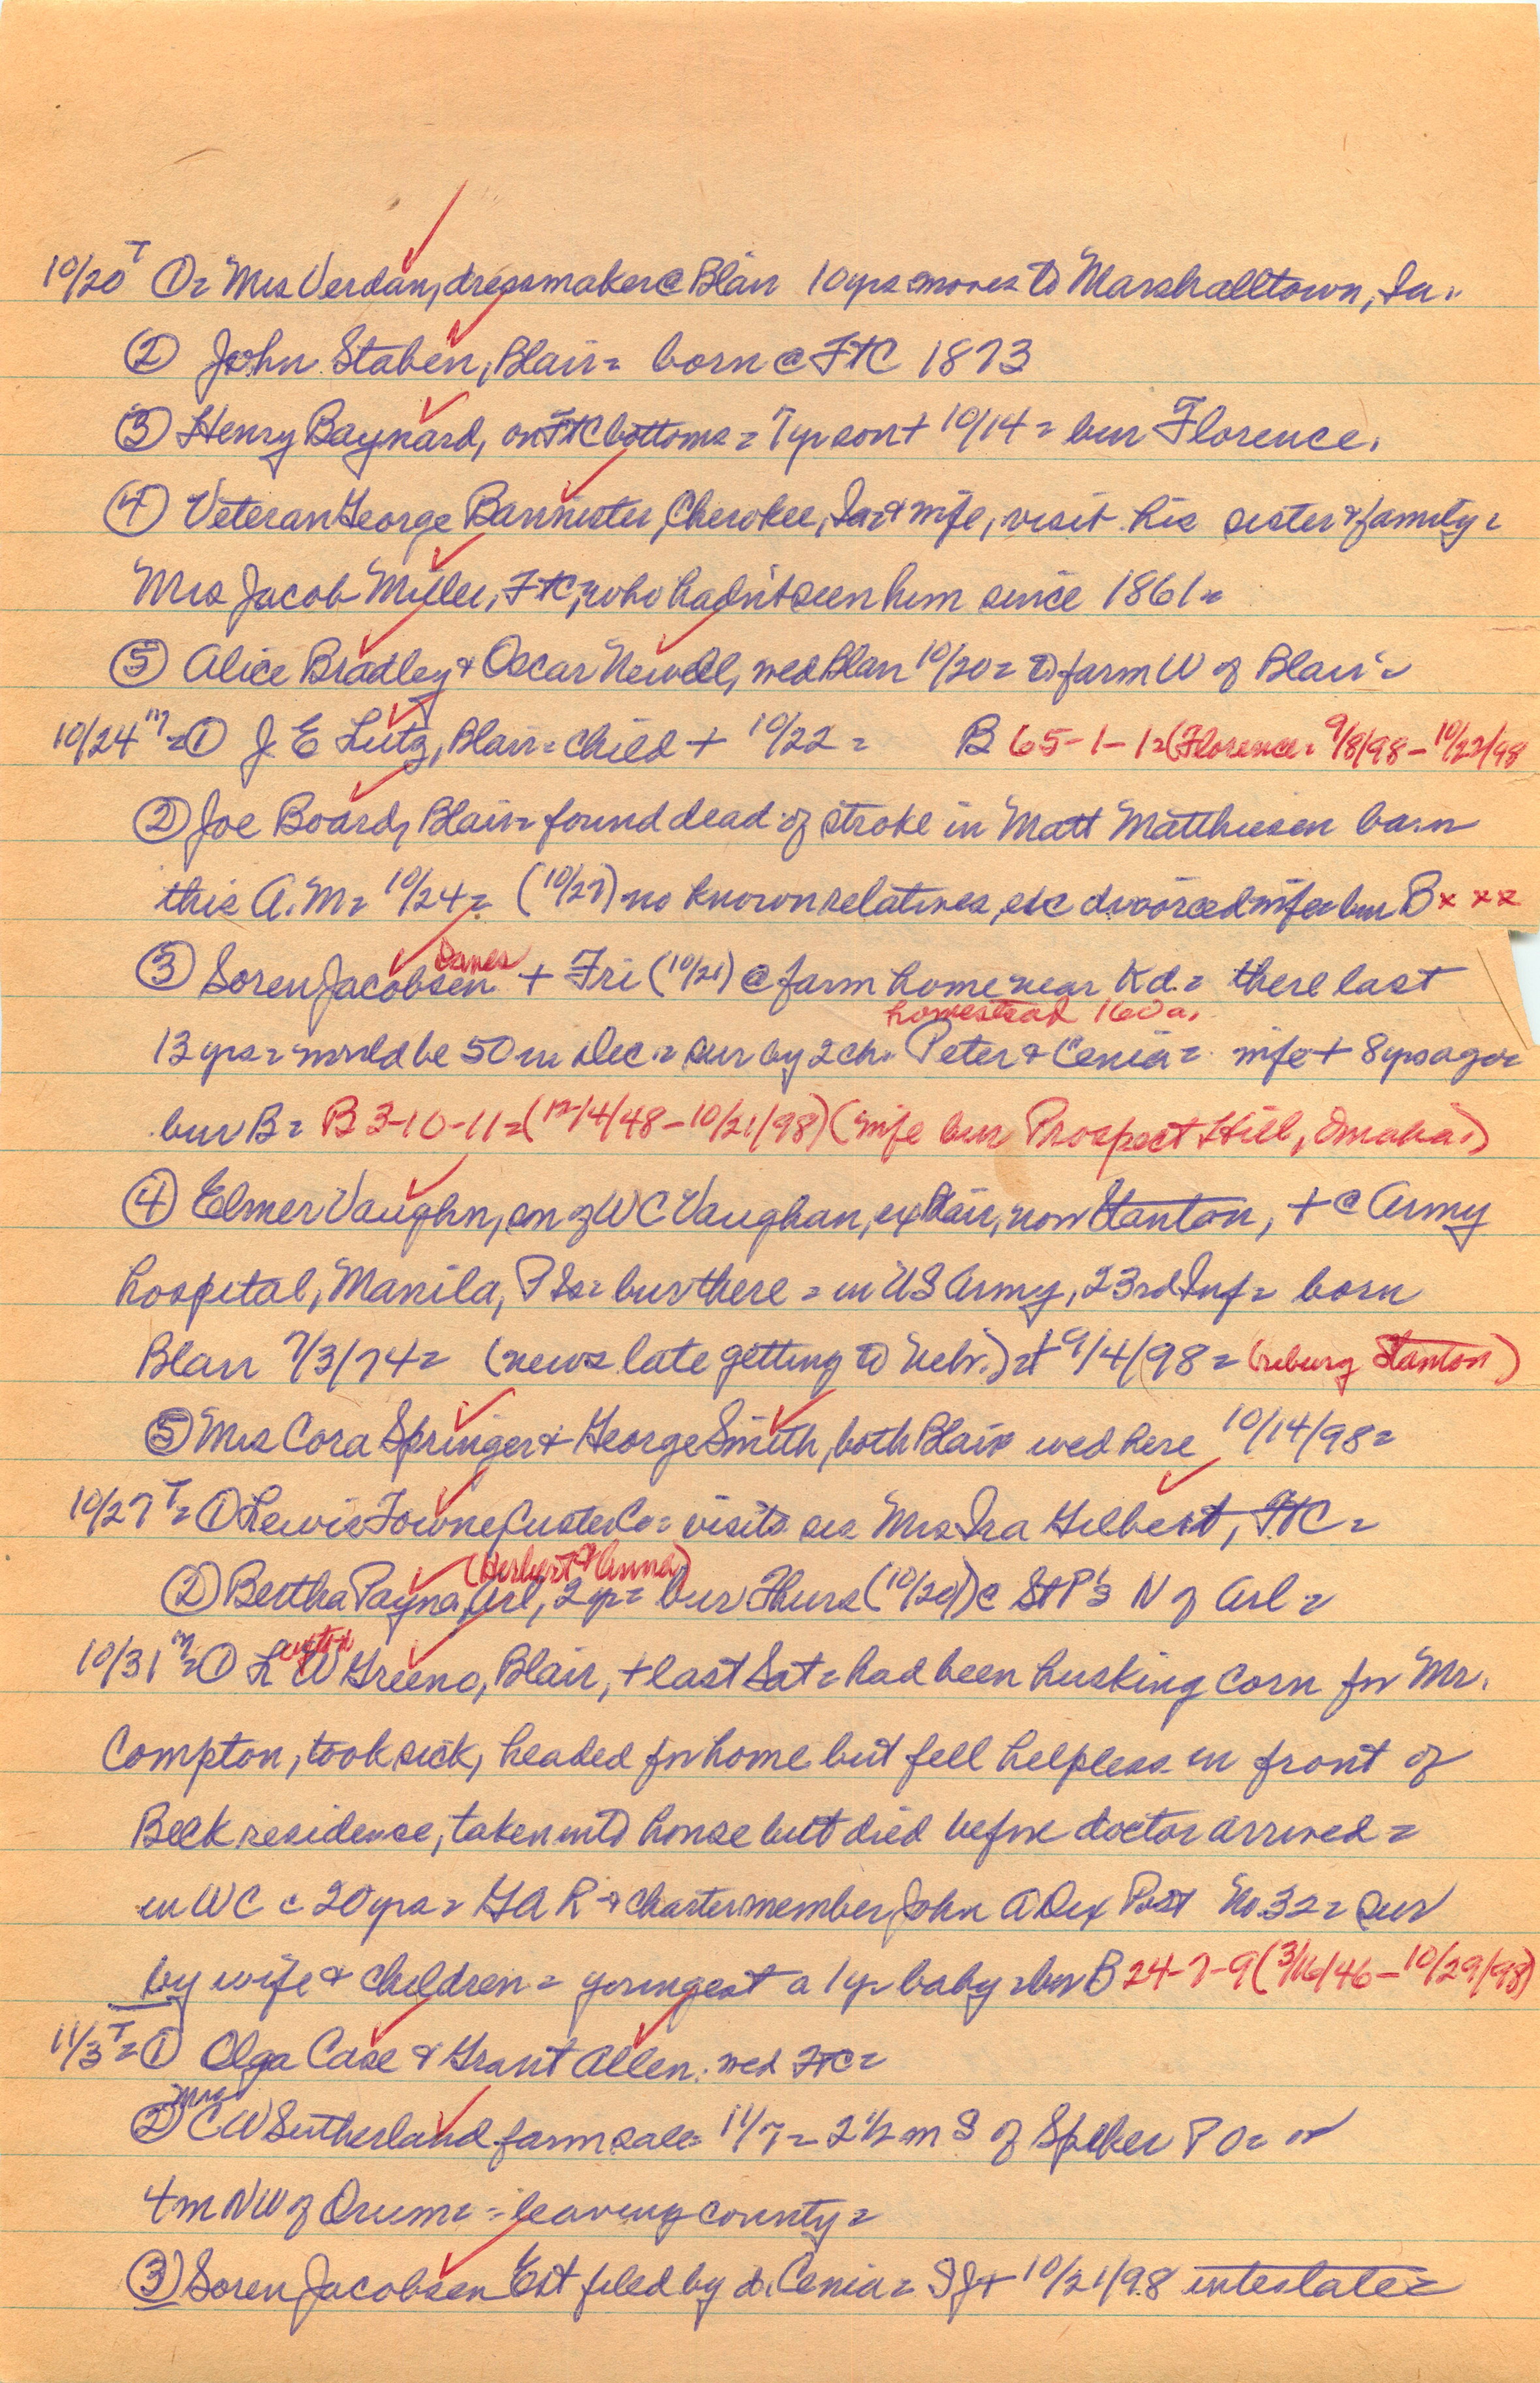 10/20 T ①= Mrs Verdan, dressmaker @ Blair 10 yrs moves to Marshalltown, Ia.
② John Staben, Blair= born @ FtC 1873
③ Henry Baynard, on FtC bottoms = 7 yr son + 10/14 = bur Florence.
④ Veteran George Bannister, Cherokee, Ia & wife, visit his sister & family=
Mrs Jacob Miller, FtC, who hadn't seen him since 1861=
⑤ Alice Bradley & Oscar Newell, wed Blair 10/20= to farm W of Blair=
10/24 m=① J. E Lutz, Blair= child + 10/22 = B 65-1-1=(Florence= 9/8/98-10/22/98
② Joe Board, Blair= found dead of stroke in Matt Matthiesen barn
this A.M= 10/24= (10/27) no known relatives, exc divorced wife= bur B x x x
③ Soren Jacobsen Danes + Fri (10/21) @ farm home near Kd.= there last
homestead 160a.
13 yrs= would be 50 in Dec.= sur by 2 ch. Peter & Cenia= wife + 8 yrs ago=
bur B= B 3-10-11=(12/4/48-10/21/98) (wife bur Prospect Hill, Omaha.)
④ Elmer Vaughn, son of W C Vaughan, ex Blair, now Stanton, + @ Army
hospital, Manila, P Is= bur there = in US Army, 23rd Inf= born
Blair 7/3/74= (news late getting to Nebr.)= + 9/4/98= (reburg Stanton)
⑤ Mrs Cora Springer & George Smith, both Blair wed here 10/14/98=
10/27 T=① Lewis Towne Custer Co= visits sis Mrs Ira Gilbert, FtC=
(Herbert & Anna)
② Bertha Payna, Arl, 2 yr= bur Thurs (10/20) @ St P's N of Arl=
10/31 m=① L W Greeno, Blair, + last Sat= had been husking corn for Mr.
Compton, took sick, headed for home but fell helpless in front of
Beck residence, taken into house but died before doctor arrived=
in WC c 20 yrs= GAR & charter member John A Dix Post No. 32= sur
by wife & children= youngest a 1 yr baby= bur B 24-7-9 (3/16/46-10/29/98)
11/3 T=① Olga Case & Grant Allen. wed FtC=
② Mrs C W Sutherland farm sale= 11/7= 2 1/2 m S of Spiker P O= or
4 m NW of Orum= = leaving county=
③ Soren Jacobsen Est filed by d. Cenia= S J + 10/21/98 intestate=